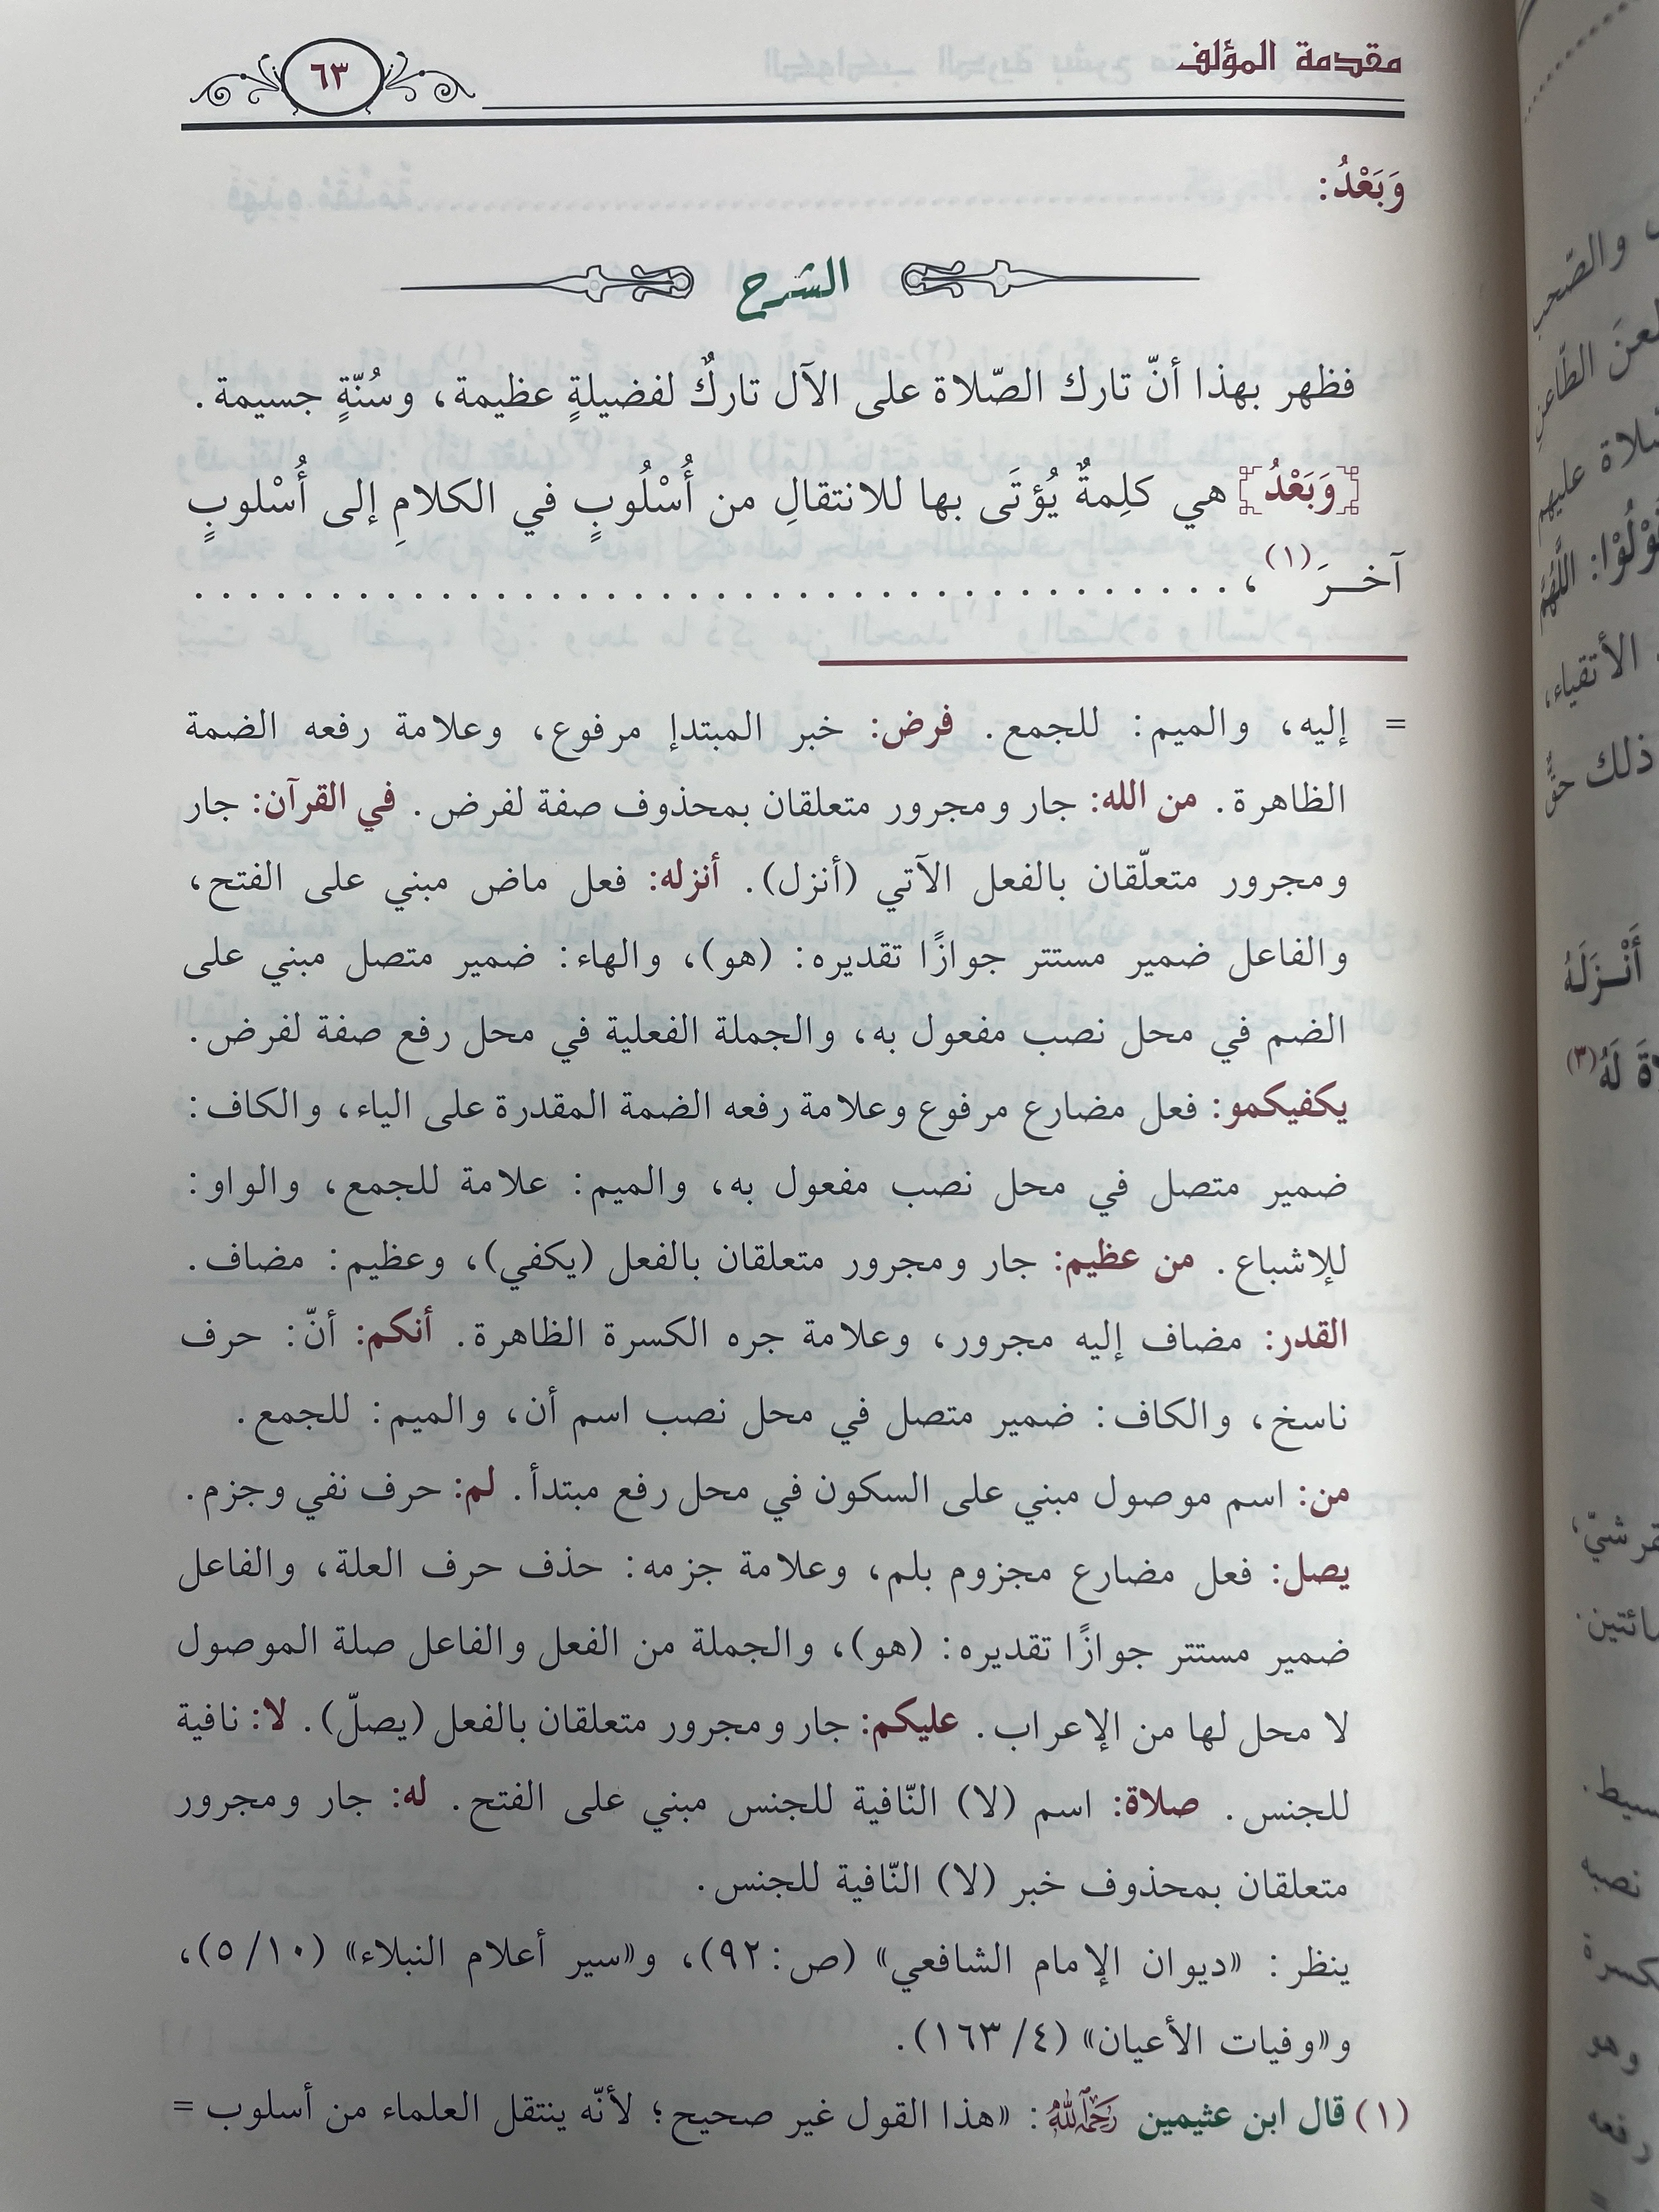 مقدمة المؤلف
٦٣
وَبَعْدُ:
الشرح
فظهر بهذا أنّ تارك الصّلاة على الآل تاركٌ لفضيلةٍ عظيمة، وسُنّةٍ جسيمة.
[وَبَعْدُ] هي كلِمةٌ يُؤتَى بها للانتقالِ من أُسْلُوبٍ في الكلامِ إلى أُسْلوبٍ
آخـرَ(١)، . . . . . . . . . . . . . . . . . . . . . . . . . . . . . . . . . . . . . .
= إليه، والميم: للجمع. فرض: خبر المبتدإ مرفوع، وعلامة رفعه الضمة
الظاهرة. من الله: جار ومجرور متعلقان بمحذوف صفة لفرض. في القرآن: جار
ومجرور متعلّقان بالفعل الآتي (أنزل). أنزله: فعل ماض مبني على الفتح،
والفاعل ضمير مستتر جوازًا تقديره: (هو)، والهاء: ضمير متصل مبني على
الضم في محل نصب مفعول به، والجملة الفعلية في محل رفع صفة لفرض.
يكفيكمو: فعل مضارع مرفوع وعلامة رفعه الضمة المقدرة على الياء، والكاف:
ضمير متصل في محل نصب مفعول به، والميم: علامة للجمع، والواو:
للإشباع. من عظيم: جار ومجرور متعلقان بالفعل (يكفي)، وعظيم: مضاف.
القدر: مضاف إليه مجرور، وعلامة جره الكسرة الظاهرة. أنكم: أنّ: حرف
ناسخ، والكاف: ضمير متصل في محل نصب اسم أن، والميم: للجمع.
من: اسم موصول مبني على السكون في محل رفع مبتدأ. لم: حرف نفي وجزم.
يصل: فعل مضارع مجزوم بلم، وعلامة جزمه: حذف حرف العلة، والفاعل
ضمير مستتر جوازًا تقديره: (هو)، والجملة من الفعل والفاعل صلة الموصول
لا محل لها من الإعراب. عليكم: جار ومجرور متعلقان بالفعل (يصلّ). لا: نافية
للجنس. صلاة: اسم (لا) النّافية للجنس مبني على الفتح. له: جار ومجرور
متعلقان بمحذوف خبر (لا) النّافية للجنس.
ينظر: «ديوان الإمام الشافعي» (ص:٩٢)، و«سير أعلام النبلاء» (٥/١٠)،
و«وفيات الأعيان» (١٦٣/٤).
(١) قال ابن عثيمين رَحِمَهُ اللهُ: «هذا القول غير صحيح؛ لأنّه ينتقل العلماء من أسلوب =
والصّحب
الطّاعن
عليهم
اللَّهُمَّ
الأتقياء،
ذلك حقٌّ
أَنْـزَلَهُ
لَهُ(٣)
نصبه
وهو
رفعه